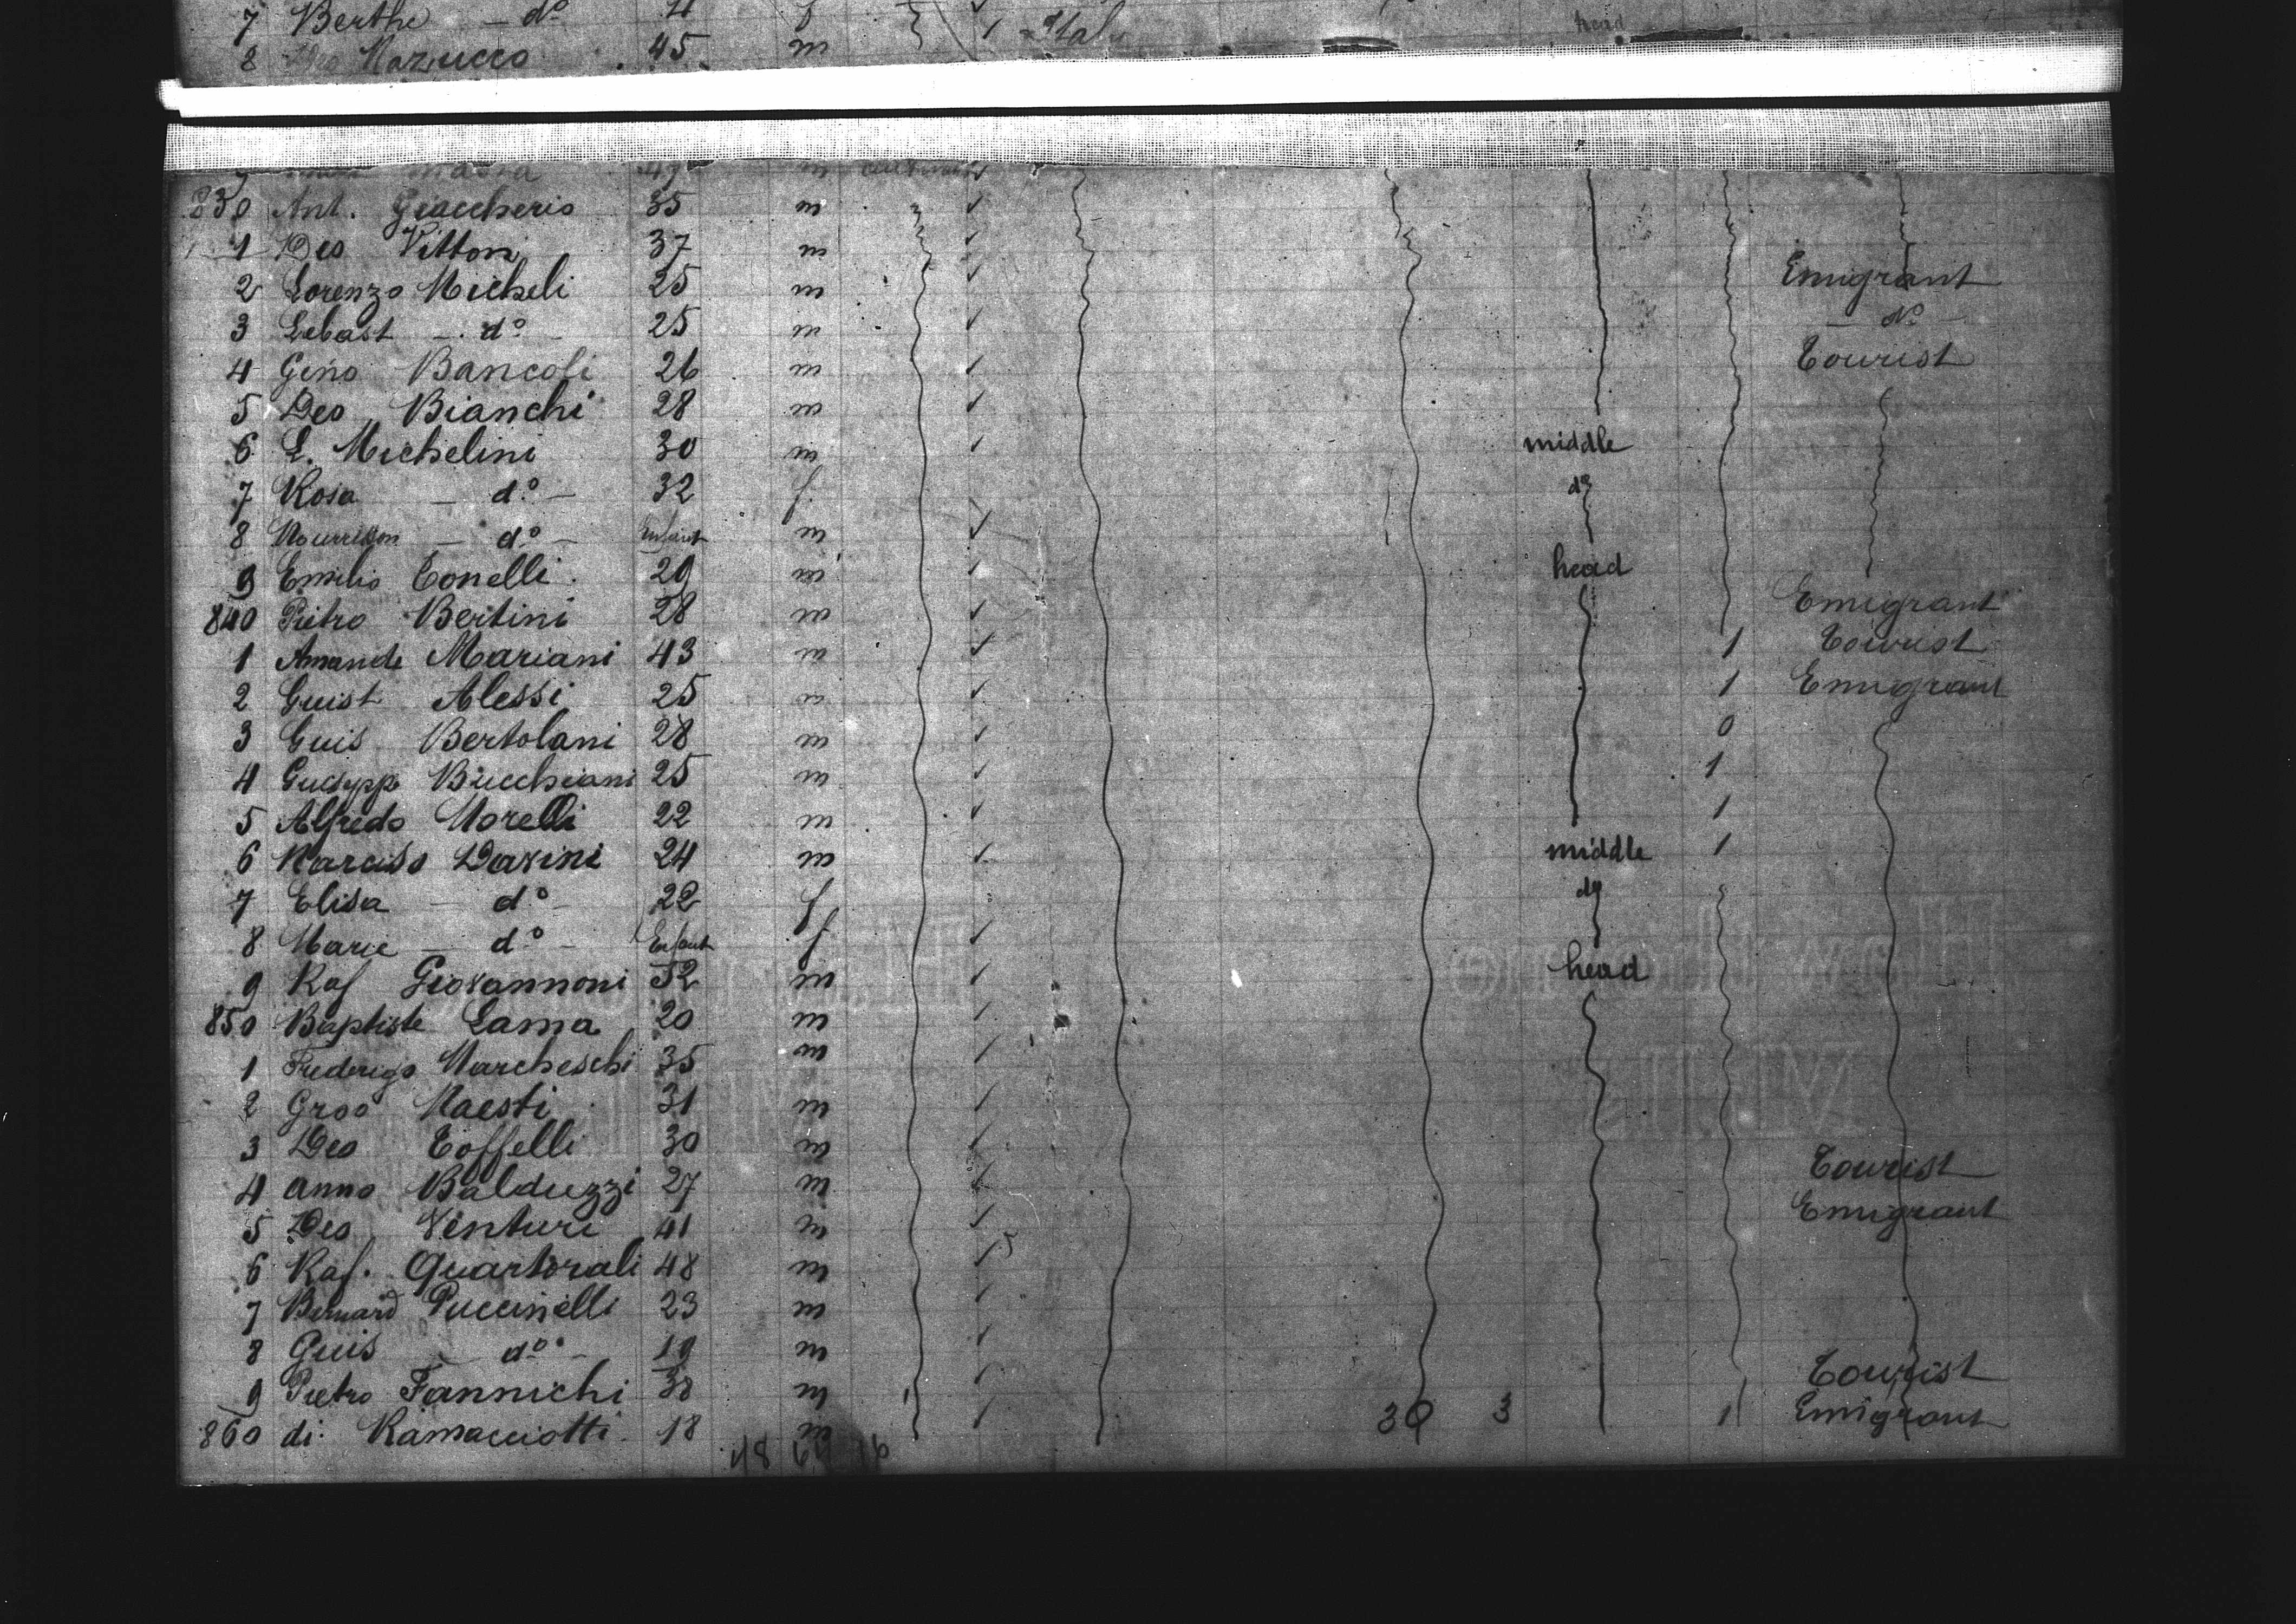 7 Berthe - do 4 f 1 Ital
8 Mazucco 45 m
head
830 Ant. Giaccherio 35 m
1 Deo Vittori 37 m
2 Lorenzo Micheli 25 m Emigrant
3 Sebast - do - 25 m - do -
4 Gino Bancoli 26 m Tourist
5 Deo Bianchi 28 m
6 L. Michelini 30 m middle
7 Rosa - do - 32 f. do
8 Nourrisson - do - Enfant m
9 Emilio Tonelli 29 m head
840 Pietro Bertini 28 m Emigrant
1 Amande Mariani 43 m 1 Tourist
2 Guist Alessi 25 m 1 Emigrant
3 Guis Bertolani 28 m 0
4 Guiseppe Bucchiani 25 m 1
5 Alfredo Morelli 22 m 1
6 Narciso Davini 24 m middle 1
7 Elisa - do - 22 f do
8 Marie - do - Enfant f
9 Raf Giovannoni 52 m head
850 Baptiste Lama 20 m
1 Frederigo Marcheschi 35 m
2 Groo Naesti 31 m
3 Deo Toffelli 30 m
4 Anno Balduzzi 27 m Tourist
5 Deo Venturi 41 m Emigrant
6 Raf. Quartorali 48 m
7 Bernard Puccinelli 23 m
8 Guis - do - 19 m
9 Pietro Fannichi 38 m Tourist
860 di Ramacciotti 18 m 30 3 1 Emigrant
18 64 16